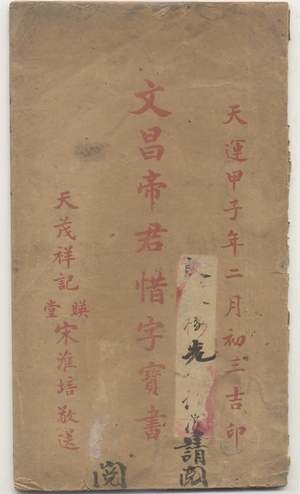 天運甲子年二月初三吉印
文昌帝君惜字寶書
先
請閱
天茂祥記
瑛堂宋淮培敬送
閱